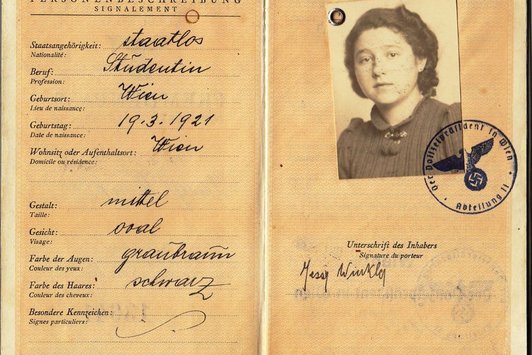 PERSONENBESCHREIBUNG
SIGNALEMENT
Staatsangehörigkeit: staatlos
Nationalité:
Beruf: Studentin
Profession:
Geburtsort: Wien
Lieu de naissance:
Geburtstag: 19.3.1921
Date de naissance:
Wohnsitz oder Aufenthaltsort: Wien
Domicile ou résidence:
Gestalt: mittel
Taille:
Gesicht: oval
Visage:
Farbe der Augen: graubraun
Couleur des yeux:
Farbe des Haares: schwarz
Couleur des cheveux:
Besondere Kennzeichen:
Signes particuliers:
Der Polizeipräsident in Wien
Abteilung II
Unterschrift des Inhabers
Signature du porteur